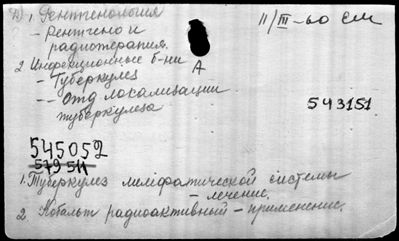 А) 1. Рентгенология
II/III-60 см
- Рентгено и
радиотерапия.
2 Инфекционные б-ни
А
- Туберкулез
-- Отд локализации
туберкулеза
543151
545052
579511
1. Туберкулез лимфатической системы
- лечение.
2. Кобальт радиоактивный - применение.